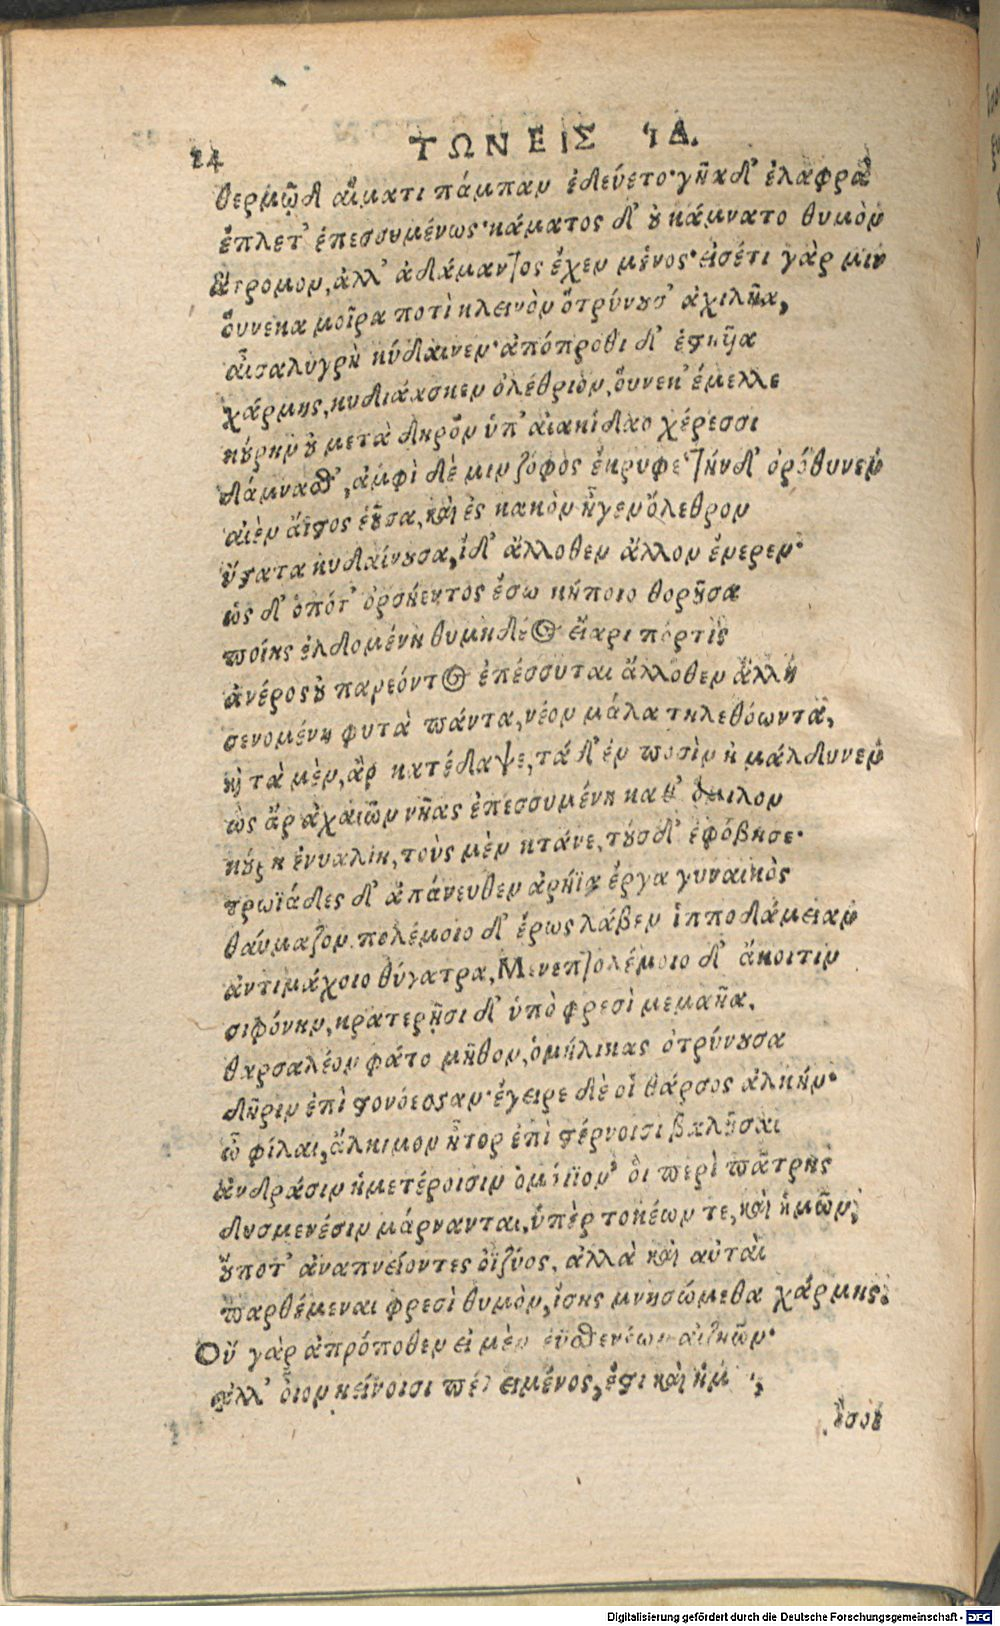 24 ΤΩΝ ΕΙΣ ΙΔ.
θερμῷ δ' αἵματι πάμπαν ἐδεύετο· γῆα δ' ἐλαφρὰ
ἔπλετ' ἐπεσσυμένως· κάματος δ' οὐ κάμνατο θυμὸν
ἄτρομον, ἀλλ' ἀδάμαντος ἔχεν μένος· εἰσέτι γὰρ μιν
οὕνεκα μοῖρα ποτὶ κλεινὸν ὄτρύνουσ' ἀχιλῆα,
αἶσα λυγρὴ κύδαινεν· ἀπόπροθι δ' ἑστηῆα
χάρμης, κυδιάασκεν ὀλέθριον, οὕνεκ' ἔμελλε
κούρην οὐ μετὰ δηρὸν ὑπ' αἰακίδαο χέρεσσι
δάμνασθ', ἀμφὶ δὲ μιν ζόφος ἔκρυφε· τὴν δ' ὀρόθυνεν
αἰὲν ἄϊστος ἐοῦσα, καὶ ἐς κακὸν ἦγεν ὄλεθρον
ὕστατα κυδαίνουσα, ἡ δ' ἄλλοθεν ἄλλον ἔνερεν·
ὡς δ' ὁπότ' ἐρσήεντος ἔσω κήποιο θοροῦσα
ποίης ἐλδομένη θυμηδέος εἴαρι πόρτις
ἀνέρος οὐ παρεόντος ἐπέσσυται ἄλλοθεν ἄλλῃ
σενομένη φυτὰ πάντα, νέον μάλα τηλεθόωντα,
καὶ τὰ μὲν, ἂρ κατέδαψε, τὰ δ' ἐν ποσὶν ἠμάλδυνεν
ὡς ἄρ ἀχαιῶν νῆας ἐπεσσυμένη καθ' ὅμιλον
κούρη ἐνυαλίη, τοὺς μὲν κτάνε, τοὺς δ' ἐφόβησε·
τρωϊάδες δ' ἀπάνευθεν ἀρήϊα ἔργα γυναικὸς
θαύμαζον. πολέμοιο δ' ἔρως λάβεν ἱπποδάμειαν
ἀντιμάχοιο θύγατρα, Μενεπτολέμοιο δ' ἄκοιτιν
σιφόνην, κρατερῇσι δ' ὑπὸ φρεσὶ μεμαῆα.
θαρσαλέον φάτο μῆθον, ὁμήλικας ὀτρύνουσα
δῆριν ἐπὶ στονόεσσαν· ἔγειρε δὲ οἱ θάρσος ἀλκήν·
ὦ φίλαι, ἄλκιμον ἦτορ ἐπὶ στέρνοισι βαλοῦσαι
ἀνδράσιν ἡμετέροισιν ὁμοίϊον· οἳ περὶ πάτρης
δυσμενέσιν μάρνανται, ὑπὲρ τοκέων τε, καὶ ἡμῶν,
οὔποτ' ἀναπνείοντες ὀϊζύος, ἀλλὰ καὶ αὐταὶ
παρθέμεναι φρεσὶ θυμὸν, ἴσης μνησώμεθα χάρμης.
Οὐ γὰρ ἀπρόποθεν εἰ μὲν ἐϋσθενέων αἰζηῶν·
ἀλλ' οἷον κείνοισι πέλει μένος, ἔστι καὶ
ἶσοι
Digitalisierung gefördert durch die Deutsche Forschungsgemeinschaft - DFG